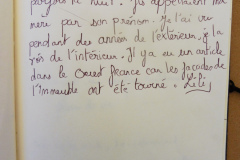 parfois la nuit. Ils appellaient ma
mère par son prénom. Je l'ai vu
pendant des années de l'extérieur. je la
vois de l'intérieur. Il y a eu un article
dans le Ouest France car les façades de
l'immeuble ont été tourné.